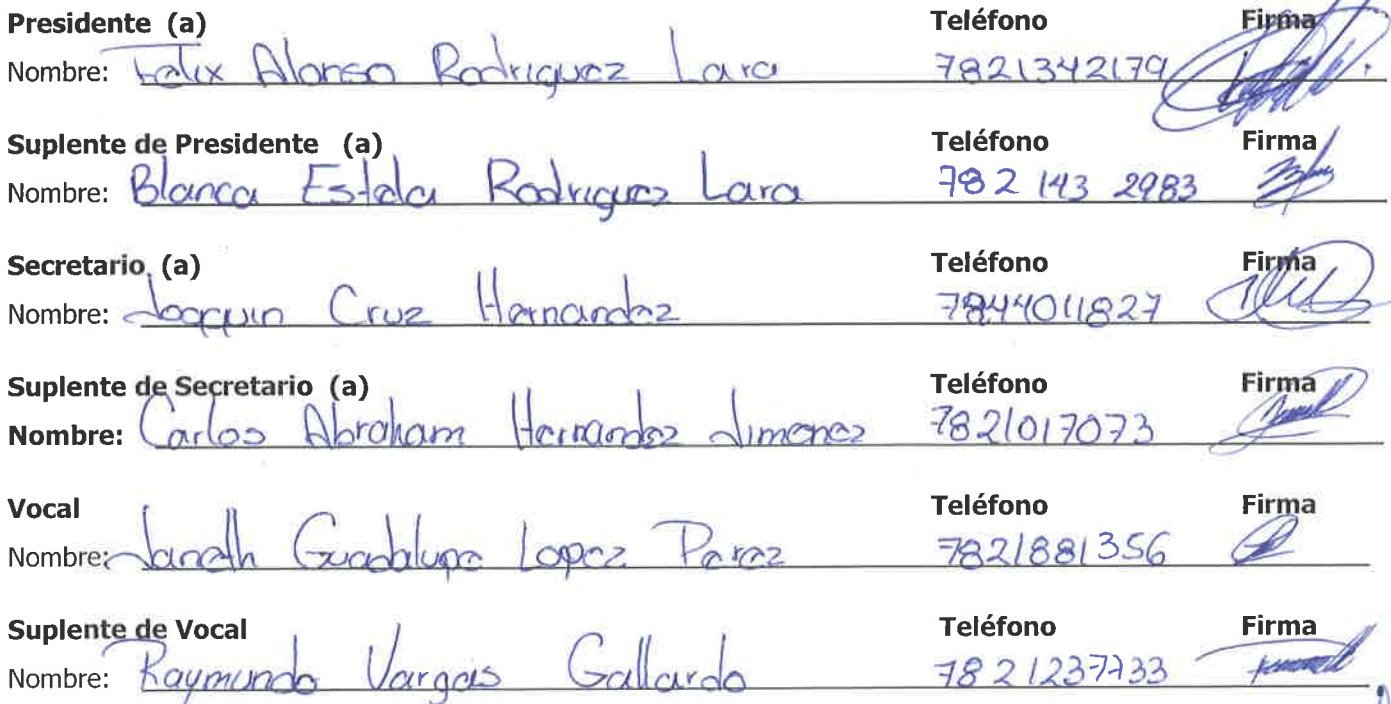 Presidente (a) Teléfono Firma
Nombre: Felix Alonso Rodriguez Lara 7821342179
Suplente de Presidente (a) Teléfono Firma
Nombre: Blanca Estela Rodriguez Lara 782 143 2983
Secretario (a) Teléfono Firma
Nombre: Joaquin Cruz Hernandez 7844011827
Suplente de Secretario (a) Teléfono Firma
Nombre: Carlos Abraham Hernandez Jimenez 7821017073
Vocal Teléfono Firma
Nombre: Janeth Guadalupe Lopez Perez 7821881356
Suplente de Vocal Teléfono Firma
Nombre: Raymundo Vargas Gallardo 7821237733